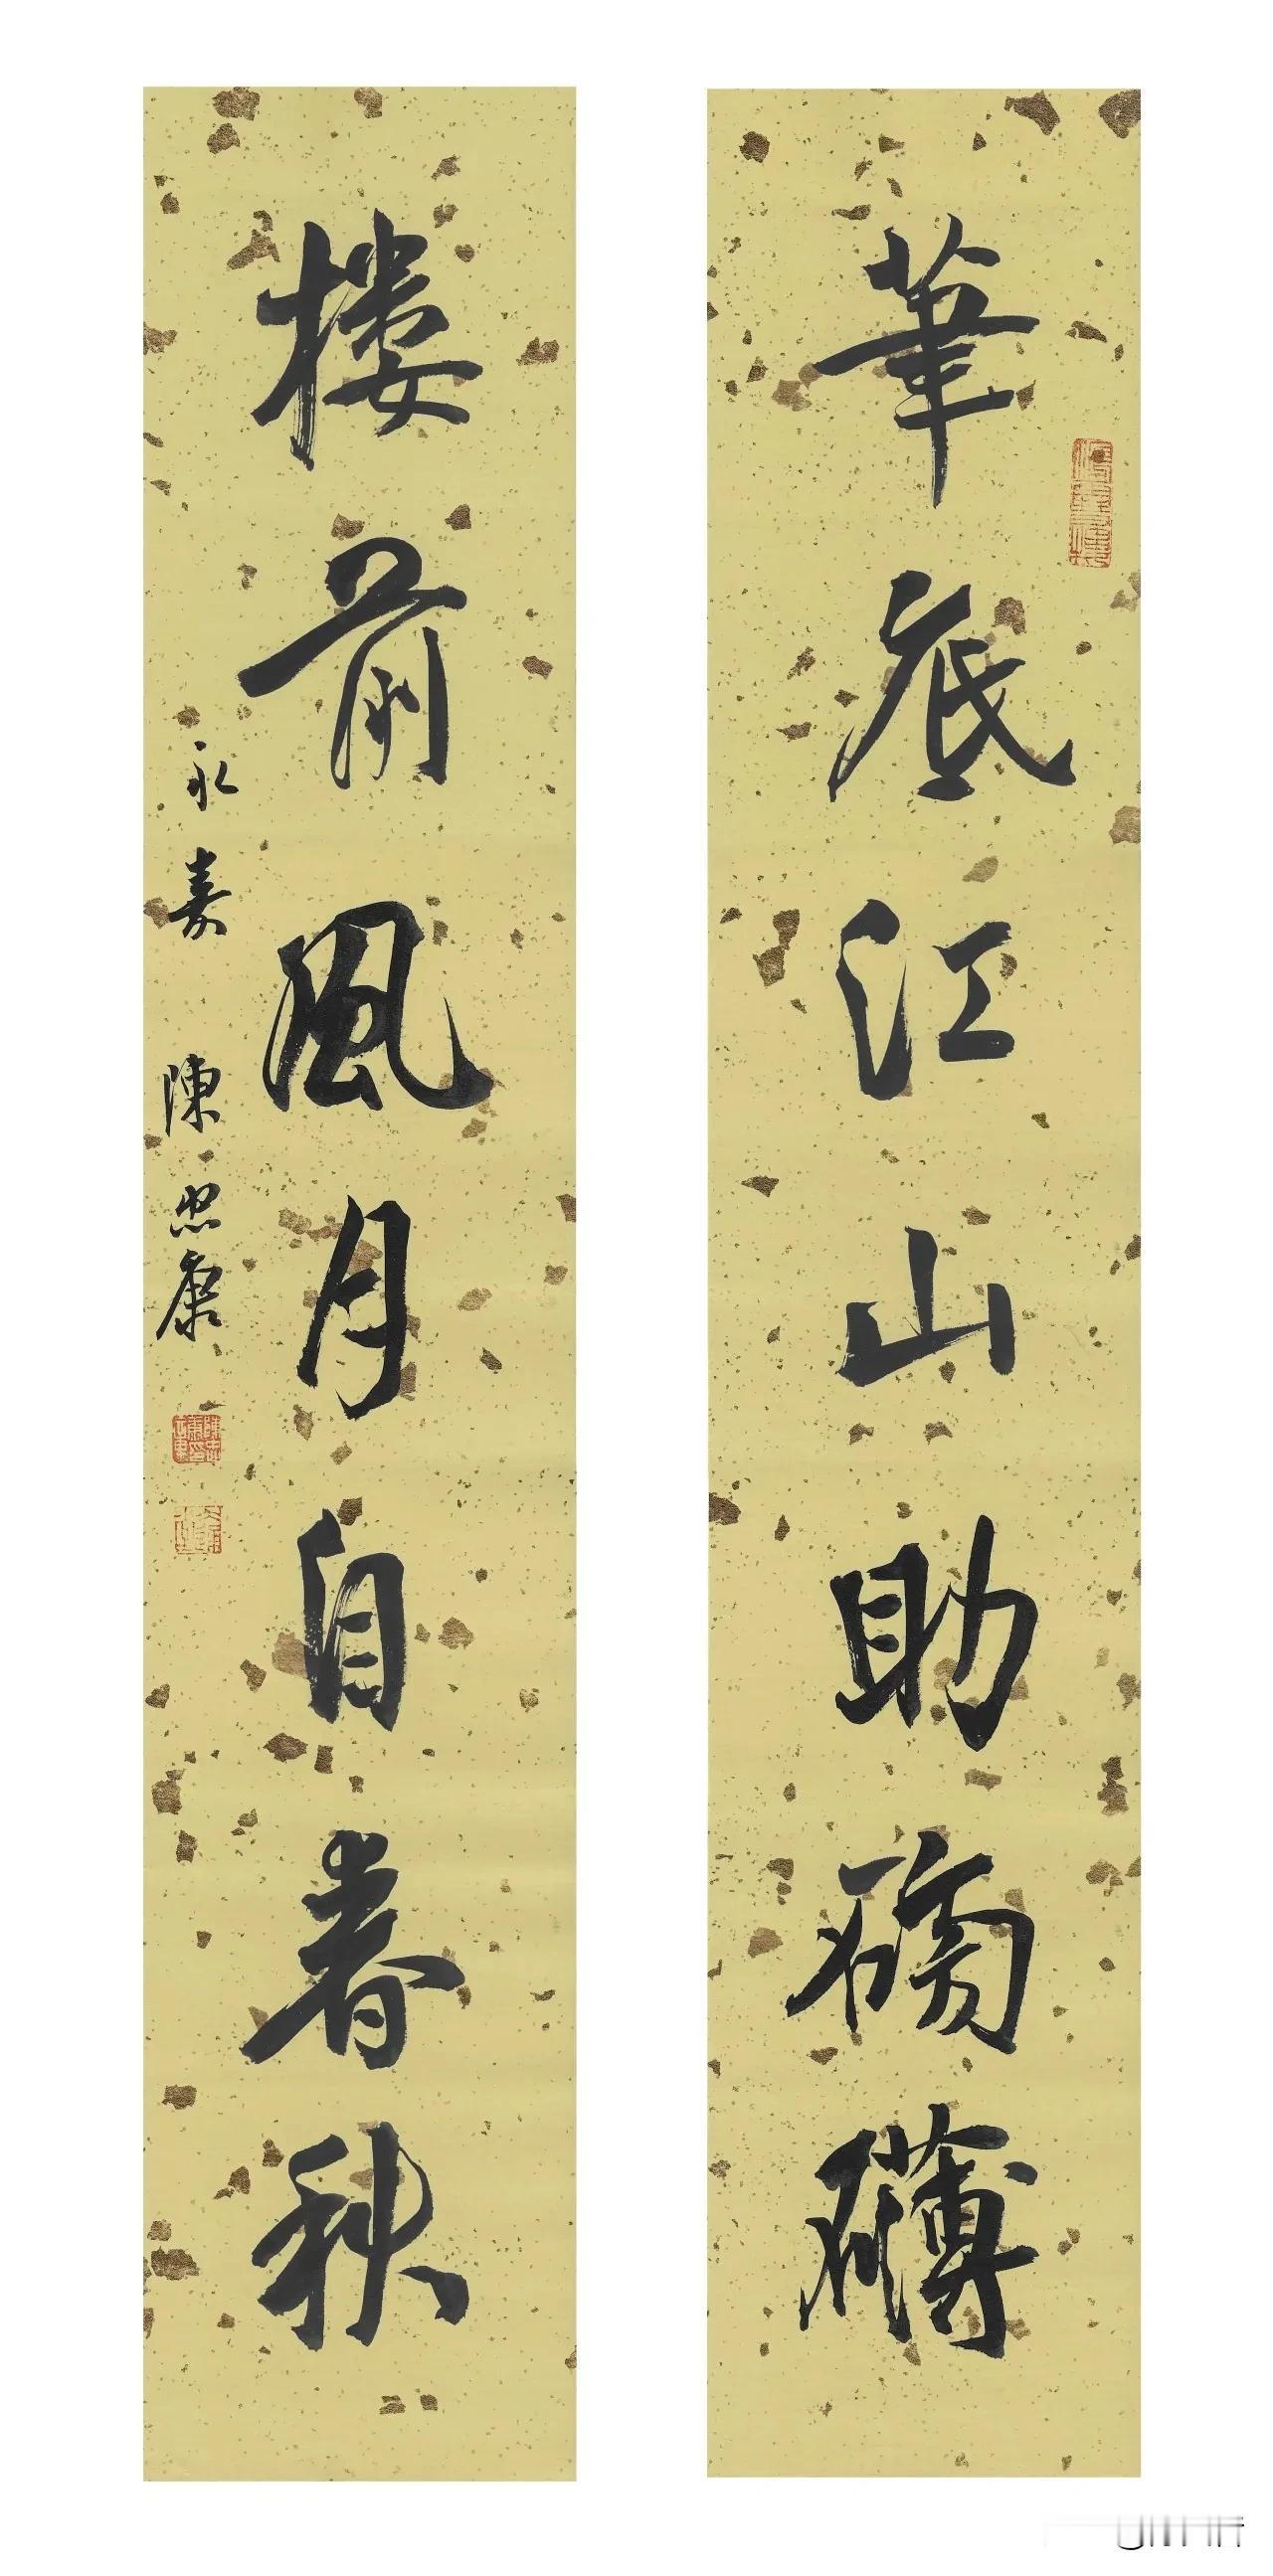 筆底江山助磅礴
樓前風月自春秋
永壽 陳忠康